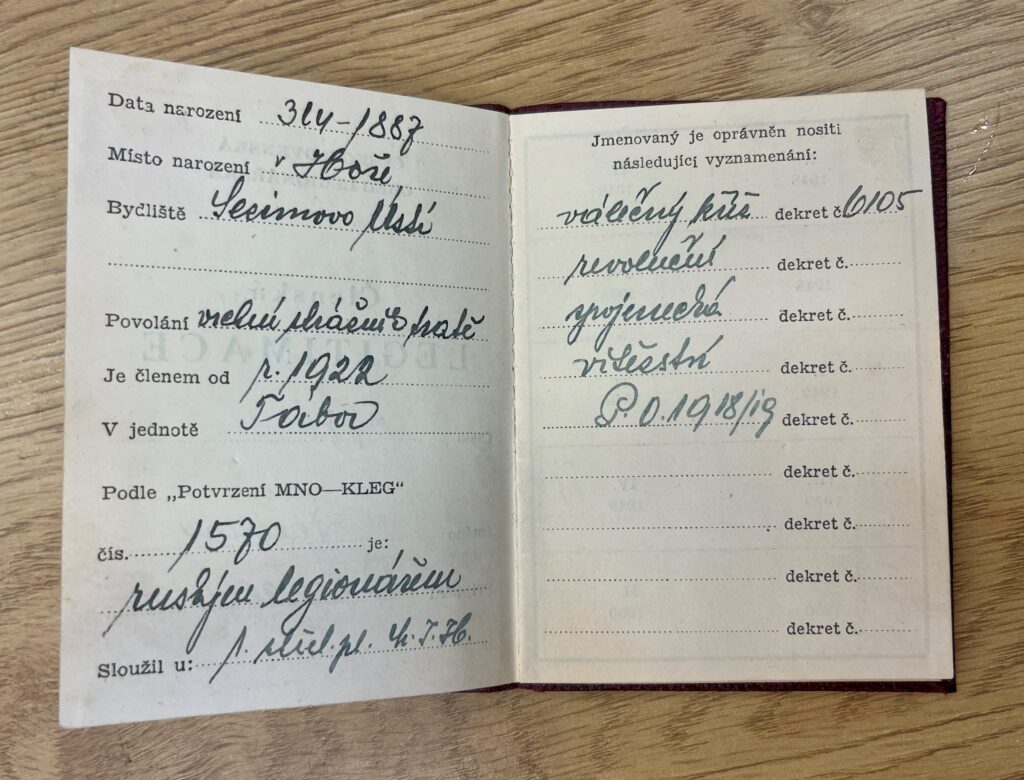 Data narození 31/4-1887
Místo narození v Hoře,
Bydliště Sezimovo Ústí
Povolání vrchní strážník tratě
Je členem od r. 1922
V jednotě Tábor
Podle „Potvrzení MNO—KLEG“
čís. 1570 je:
ruským legionářem
Sloužil u: 1. střel. pl. M. J. H.
Jmenovaný je oprávněn nositi
následující vyznamenání:
válečný kříž dekret č. 6105
revoluční dekret č.
spojenecká dekret č.
vítězství dekret č.
P. O. 1918/19 dekret č.
dekret č.
dekret č.
dekret č.
dekret č.